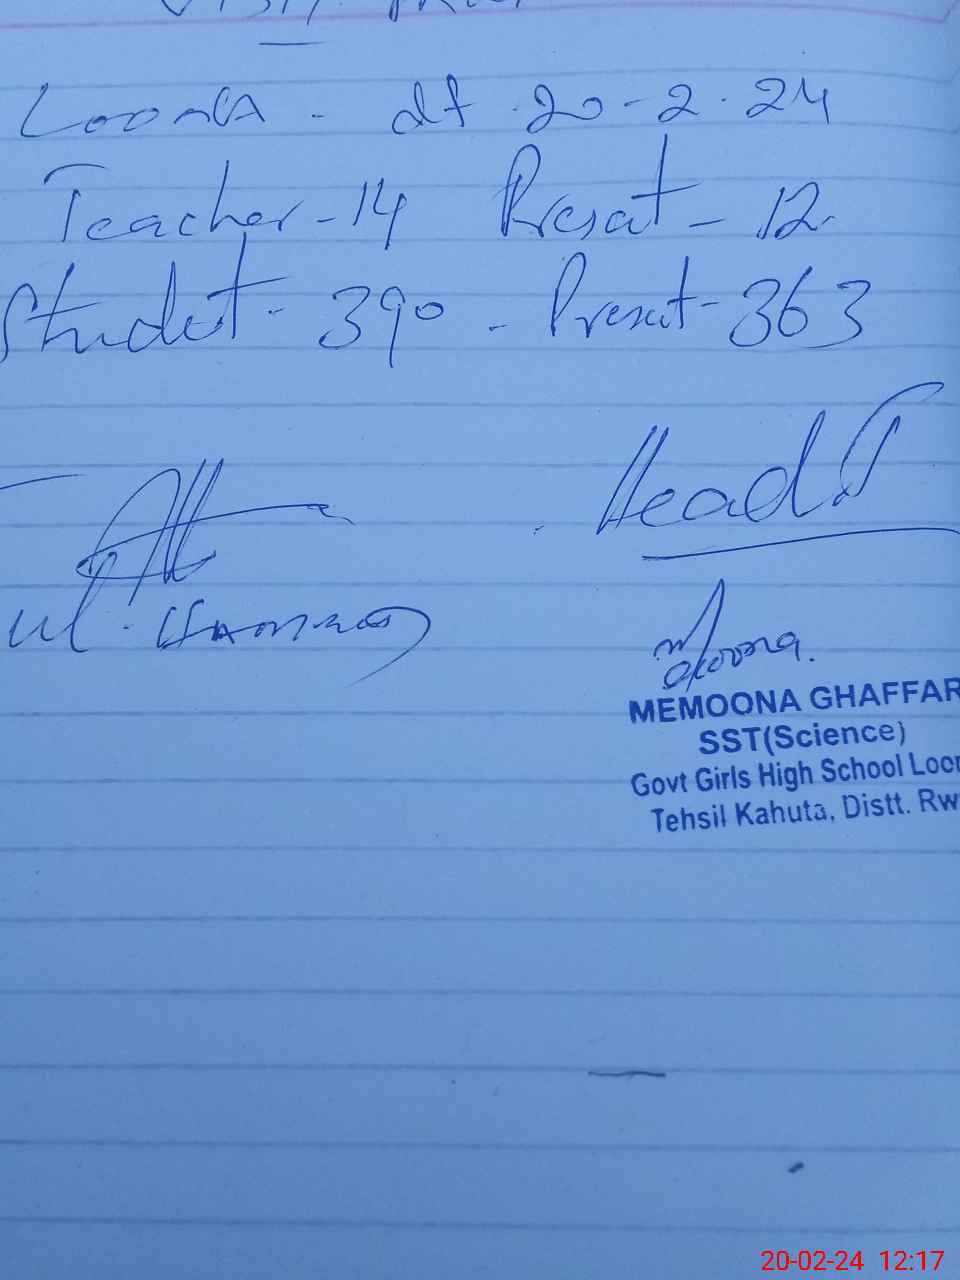 Loona . dt . 20 - 2 . 24
Teacher - 14 Present - 12
Student - 390 - Present - 363
Head T
M. Hammad
Moona.
MEMOONA GHAFFAR
SST(Science)
Govt Girls High School Loon
Tehsil Kahuta, Distt. Rw
20-02-24 12:17